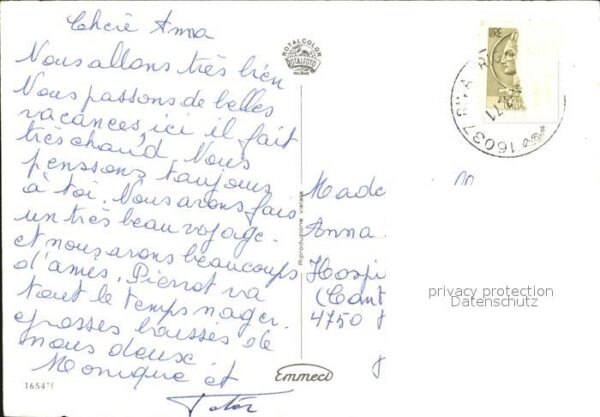 Cherè Anna
Nous allons très bien
Nous passons de belles
vacances, ici il fait
très chaud. Nous
penssons toujours
à toi. Nous avons fais
un très beau voyage.
et nous avons beaucoups
d'amis. Pierrot va
tout le temps nager.
grosses baisses de
nous deux
Monique et
ROTALCOLOR
ROTALFOTO
MILANO
Riproduzione vietata
Emmeci
1654/1
LIRE
16037
Made
Anna
Hospi
(Cant
4750
privacy protection
Datenschutz